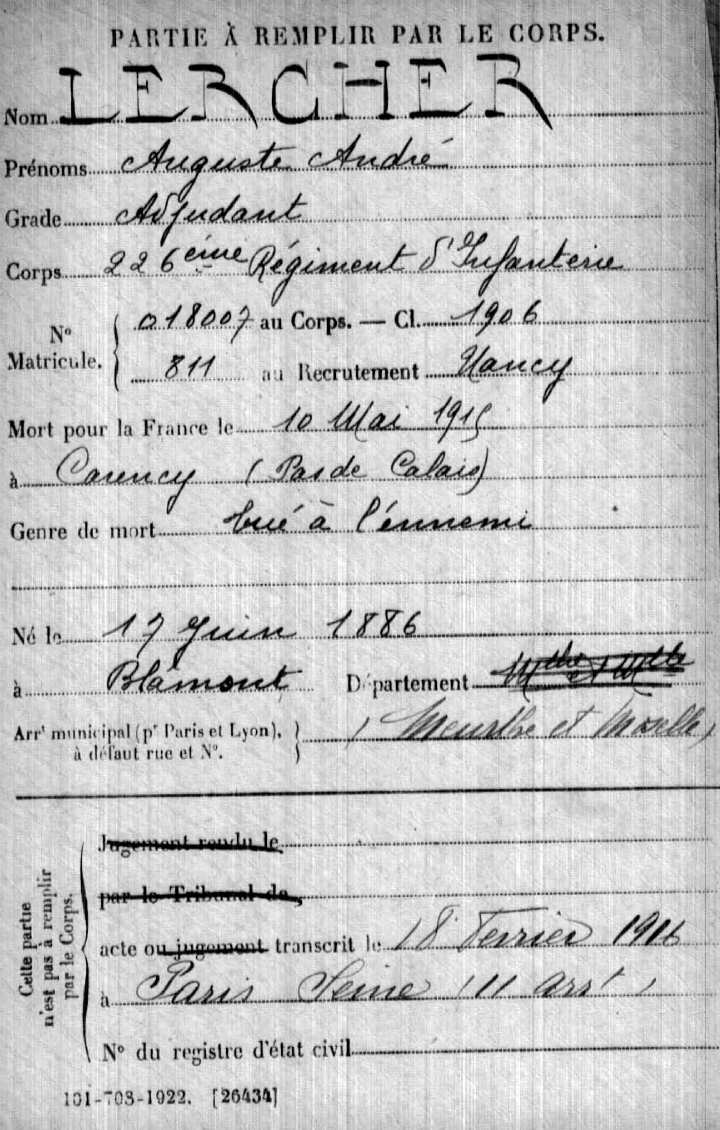 PARTIE À REMPLIR PAR LE CORPS.
Nom LERCHER
Prénoms Auguste André
Grade Adjudant
Corps 226ème Régiment d'Infanterie
No Matricule. 018007 au Corps. — Cl. 1906
811 au Recrutement Nancy
Mort pour la France le 10 Mai 1915
à Carency (Pas de Calais)
Genre de mort tué à l'énnemi
Né le 17 Juin 1886
à Blâmont Département Mthe et Mlle
Arrt municipal (pr Paris et Lyon), à défaut rue et No. (Meurthe et Moselle)
Cette partie n'est pas à remplir par le Corps.
Jugement rendu le
par le Tribunal de,
acte ou jugement transcrit le 18 Ferrier 1916
à Paris Seine (11 arrt)
No du registre d'état civil
101-708-1922. [26434]